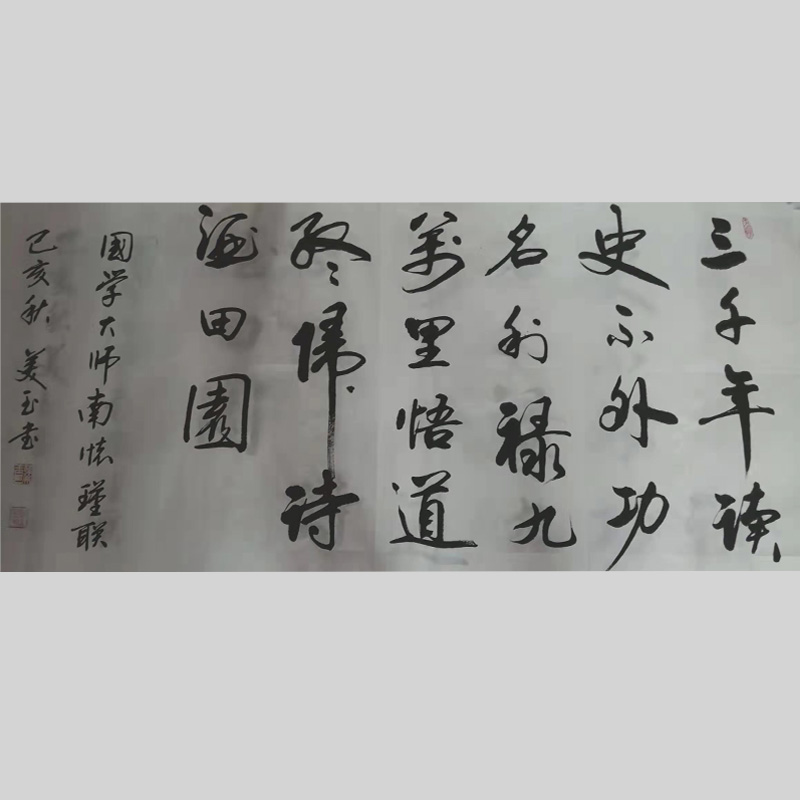 三千年讀
史不外功
名利禄九
萬里悟道
终歸诗
酒田園
國学大师南懷瑾联
己亥秋 美玉书